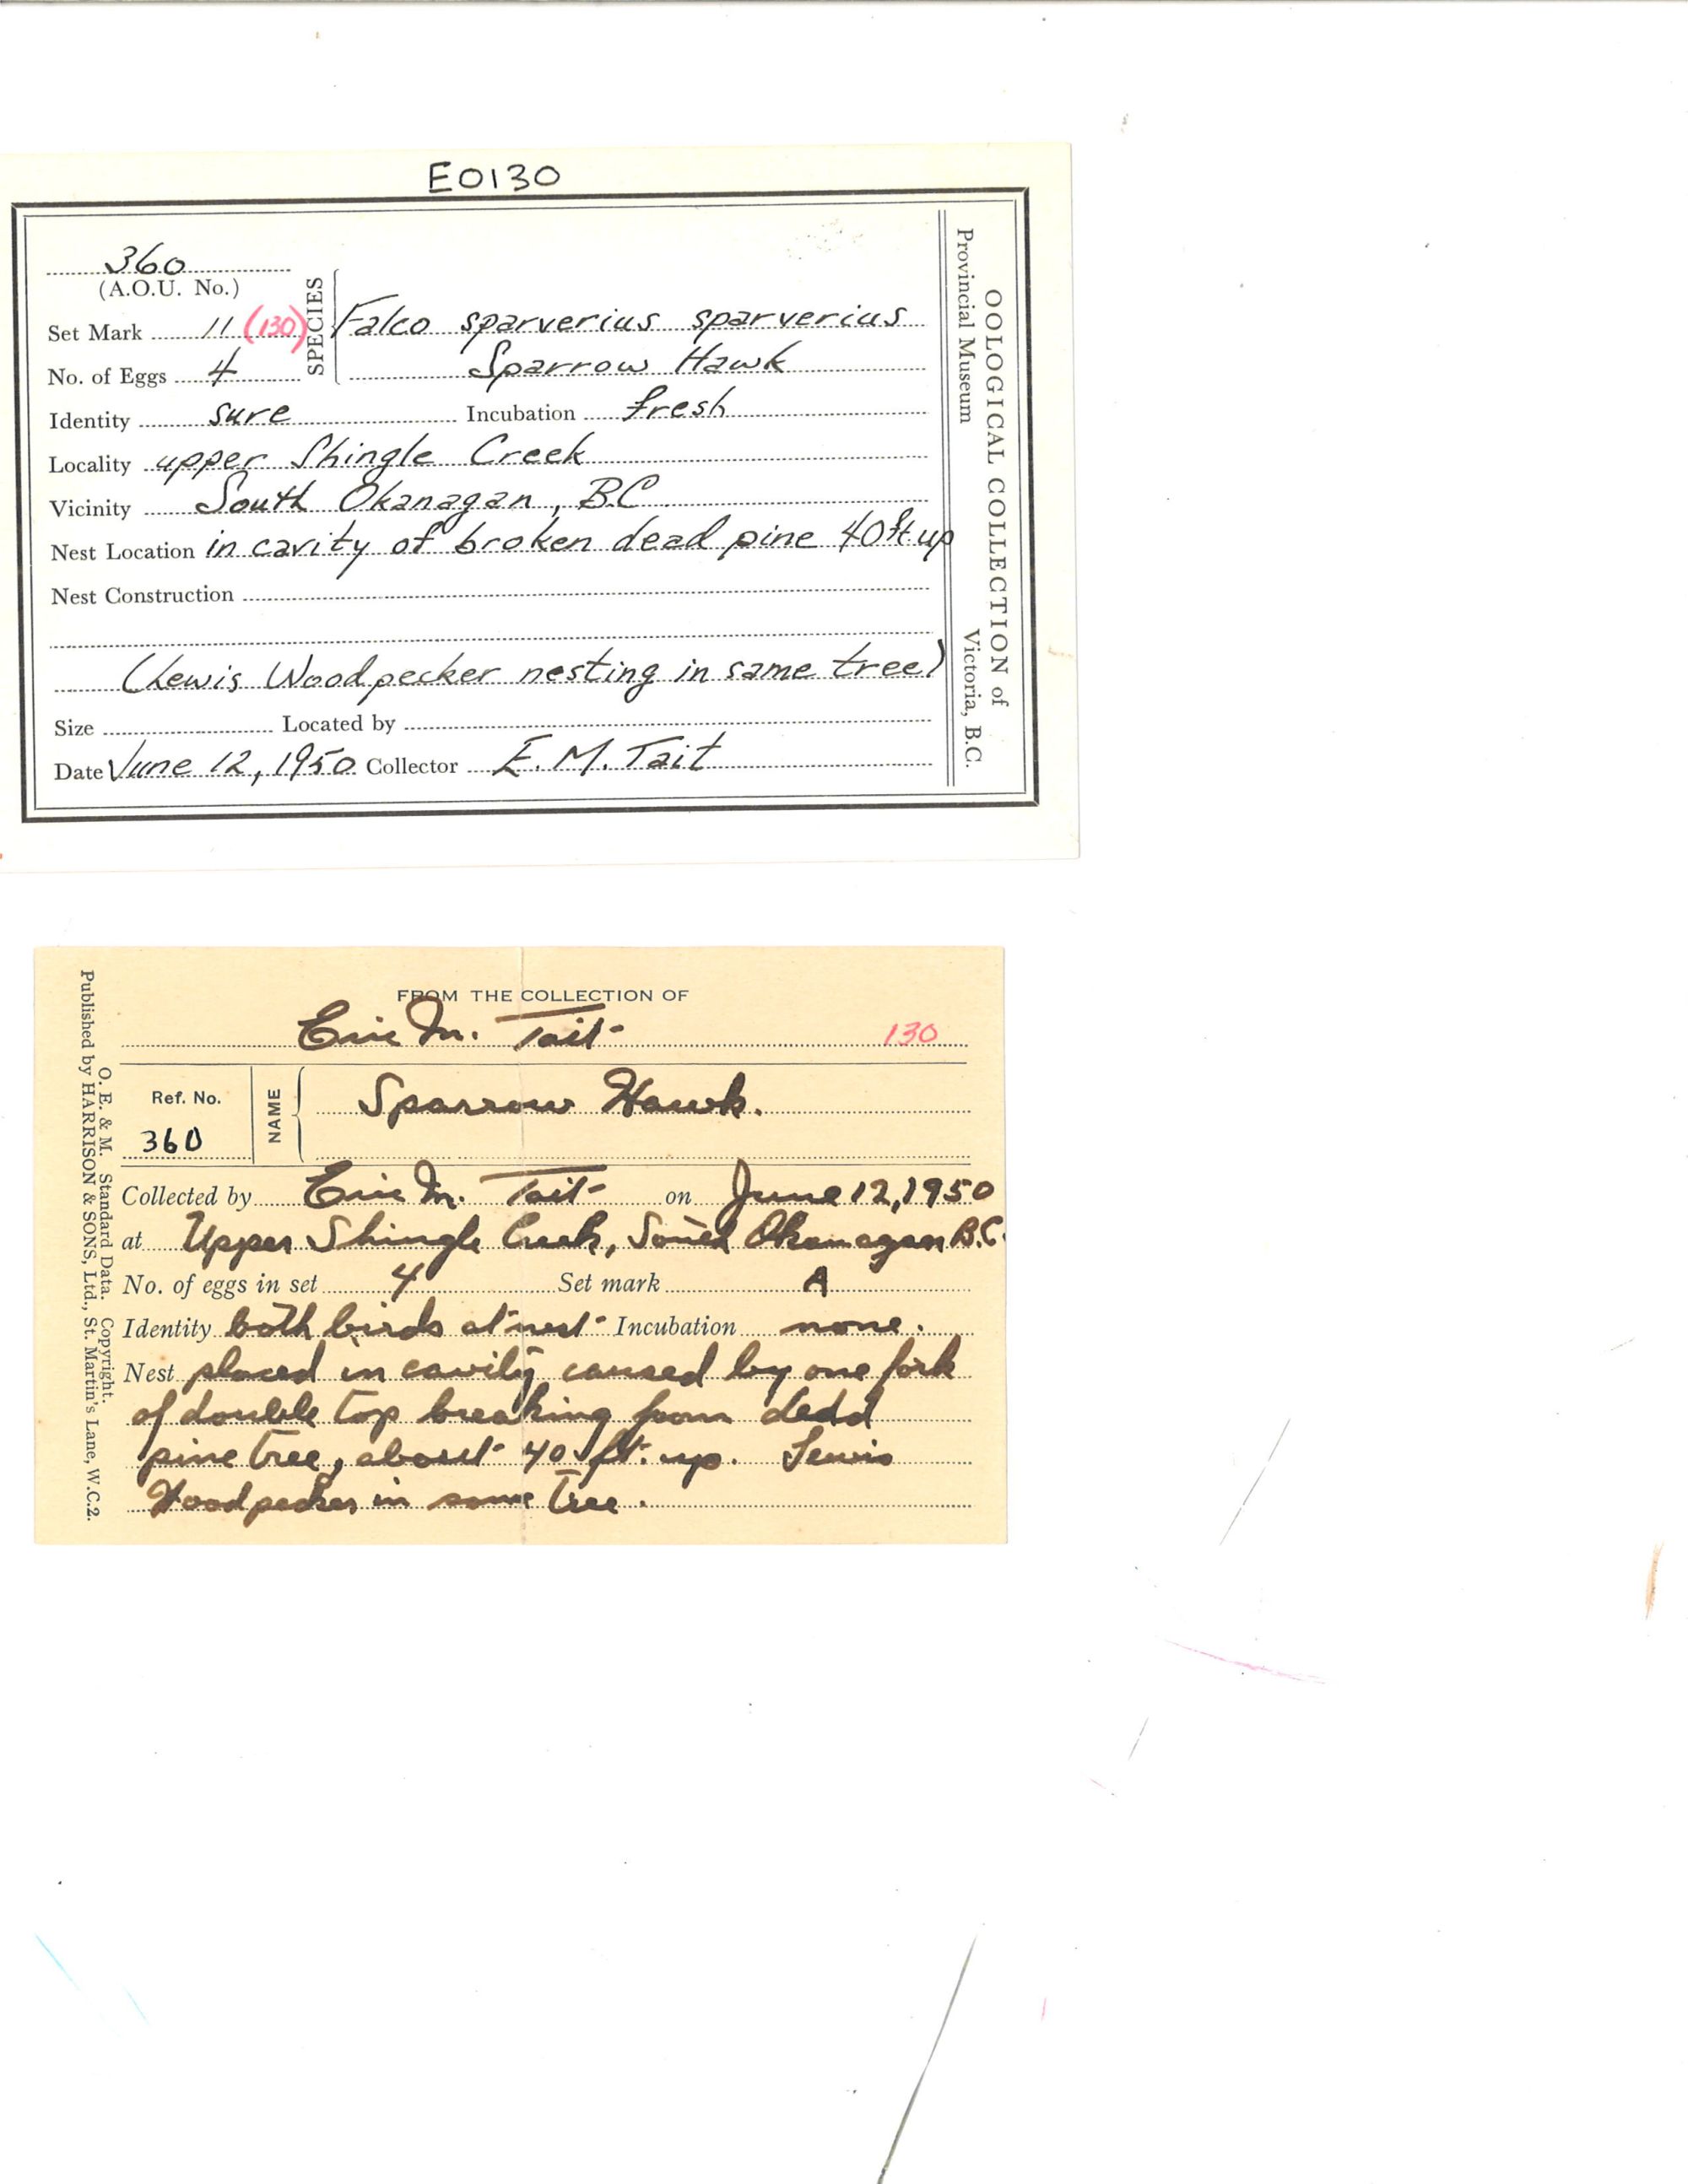 E0130
360
(A.O.U. No.)
Set Mark 11 (130)
No. of Eggs 4
SPECIES
Falco sparverius sparverius
Sparrow Hawk
Identity sure Incubation fresh
Locality upper Shingle Creek
Vicinity South Okanagan, B.C
Nest Location in cavity of broken dead pine 40 ft up
Nest Construction
(Lewis Woodpecker nesting in same tree)
Size Located by
Date June 12, 1950 Collector E. M. Tait
OOLOGICAL COLLECTION of
Provincial Museum Victoria, B.C.
FROM THE COLLECTION OF
Eric M. Tait 130
Ref. No.
360
NAME
Sparrow Hawk.
Collected by Eric M. Tait on June 12, 1950
at Upper Shingle Creek, South Okanagan B.C.
No. of eggs in set 4 Set mark A
Identity both birds at nest Incubation none.
Nest placed in cavity caused by one fork
of double top breaking from dead
pine tree, about 40 ft. up. Lewis
Woodpecker in same tree.
O. E. & M. Standard Data. Copyright.
Published by HARRISON & SONS, Ltd., St. Martin's Lane, W.C.2.